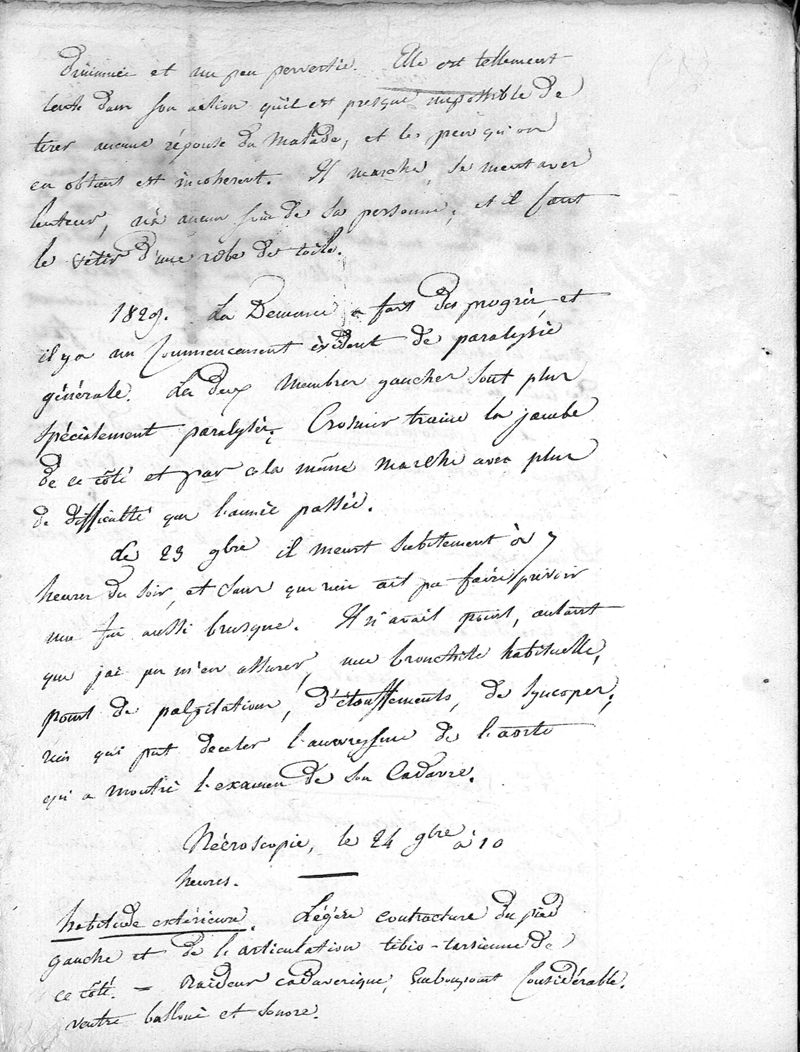 diminuée et un peu pervertie. Elle est tellement
lente dans son action qu'il est presque impossible de
tirer aucune réponse du Malade, et le peu qu'on
en obtient est incohérent. Il marche, se meut avec
lenteur, n'a aucun soin de sa personne, et il faut
le vêtir d'une robe de toile.
1829. La Démence a fait des progrès, et
il y a un Commencement évident de paralysie
générale. Les deux Membres gauches sont plus
spécialement paralysés. traine la jambe
de ce côté et par cela même marche avec plus
de difficulté que l'année passée.
Le 23 9bre il meurt subitement à 7
heures du soir, et sans que rien ait pu faire prévoir
une fin aussi brusque. Il n'avait point, autant
que j'ai pu m'en assurer, une bronchite habituelle,
point de palpitations, d'étouffements, de syncopes,
rien qui put déceler l'anévrisme de l'aorte
qu'a montré l'examen de son Cadavre.
Nécroscopie, le 24 9bre à 10
heures.
habitude extérieure. Légère contracture du pied
gauche et de l'articulation tibio-tarsienne de
ce côté. — Raideur cadavérique, Embonpoint Considérable.
ventre balloné et sonore.